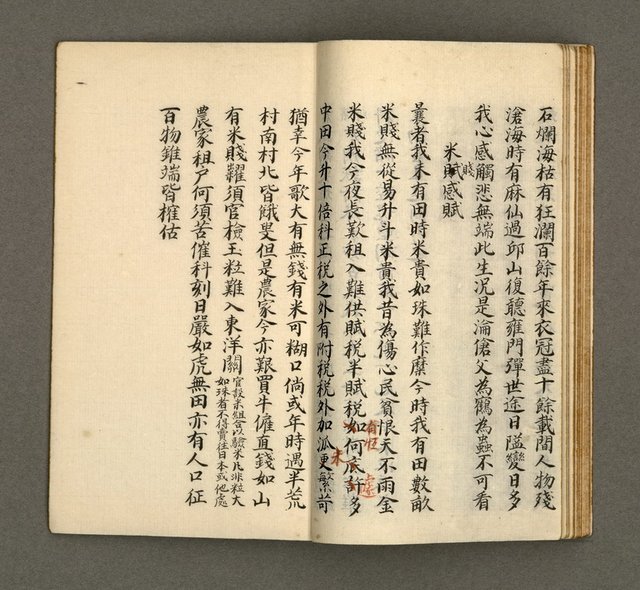 石爛海枯有狂瀾百餘年來衣冠盡十餘載間人物殘
滄海時有麻仙過邱山復聽雍門彈世途日隘變日多
我心感觸悲無端此生況是淪傖父為鶴為蟲不可看
米賦感賦
賤
曩者我未有田時米貴如珠難作糜今時我有田數畝
米賤無從易升斗米貴我昔為傷心民貧恨天不雨金
米賤我今夜長歎租入難供賦稅半賦稅如何底許多
中田今升十倍科正稅之外有附稅稅外加派更繁苛
猶幸今年歌大有無錢有米可糊口倘或年時遇半荒
村南村北皆餓叟但是農家今亦艱買牛僱直錢如山
有米賤糶須官檢玉粒難入東洋關官設米組合以驗米凡非粒大如珠者不得賣往日本或他處
農家租戶何須苦催科刻日嚴如虎無田亦有人口征
百物錐端皆榷估